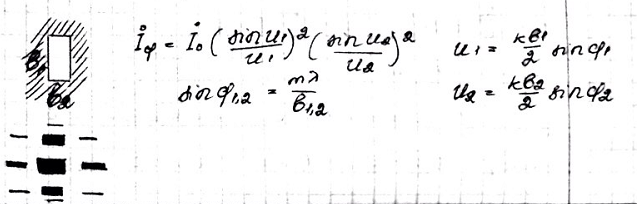 b₁
b₂
İφ = İ₀ (sin u₁/u₁)² (sin u₂/u₂)²
u₁ = kb₁/2 sin φ₁
sin φ₁,₂ = mλ/b₁,₂
u₂ = kb₂/2 sin φ₂